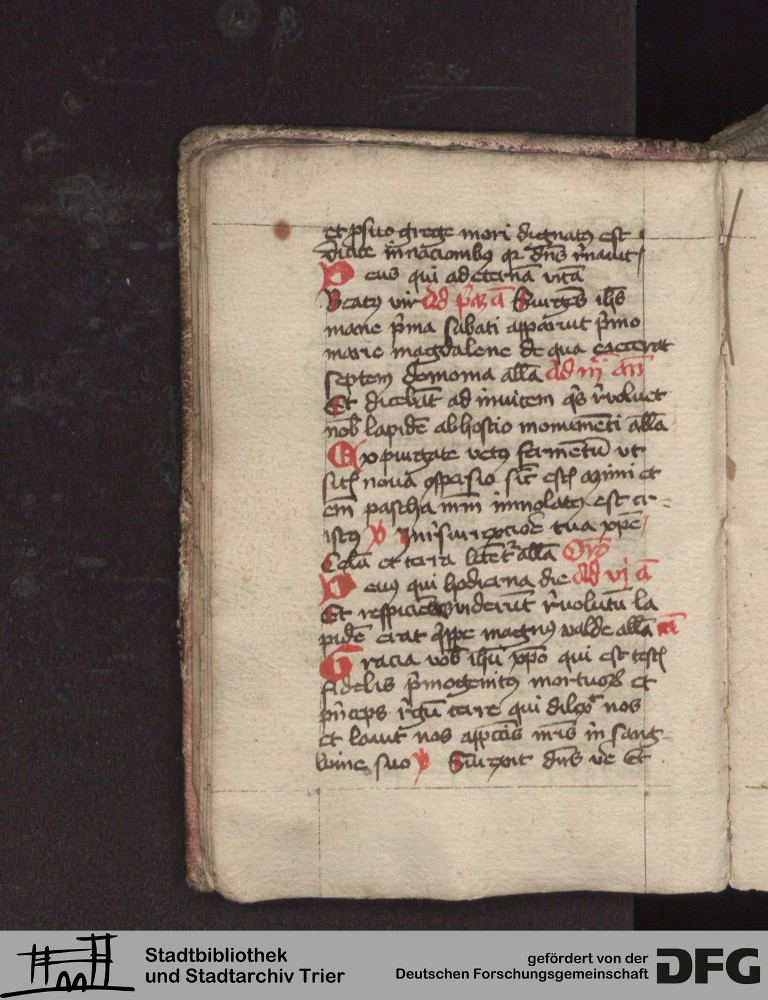 et p̄ suo grege mori dignatꝰ est
dicite in nacionibꝰ qꝛ dn̄s r̄nauit
Deus qui ad eternā vitā
Beatꝰ vir Ad pͥmā ā Surgēs ihs̄
mane pͥma sabati apparuit pͥmo
marie magdalene de qua eiecerat
septem demonia all̄a Ad iij ā
Et dicebāt ad inuicem qͥs r̄voluet
nob̄ lapidē ab hostio monumēti all̄a
Expurgate vetꝰ fermētū vt
sitꝭ noua ꝯspersio sic̄ estꝭ azimi et
em̄ pascha nr̄m immolatꝰ est cr-
istꝰ v In r̄surrexcioē tua xp̄e
Celū et terra letēt᷑ all̄a Oro
Deus qui hodierna die Ad vj ā
Et respiciētes viderūt r̄volutū la
pidē erat qͥppe magnꝰ valde all̄a
Gracia vob̄ ab ihū xp̄o qui est testꝭ
fidelis pͥmogenitꝰ mortuoꝝ et
pͥnceps r̄gū terre qui dilexͥ nos
et lauit nos a pctīs nr̄is in sang-
wine suo v Surrexit dn̄s ve Et
Stadtbibliothek
und Stadtarchiv Trier
gefördert von der
Deutschen Forschungsgemeinschaft
DFG